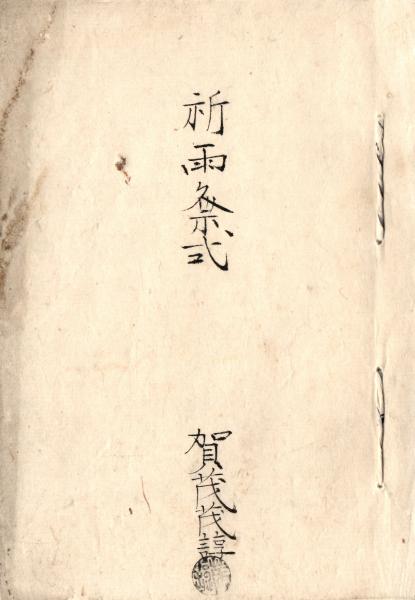 祈雨祭式
賀茂茂諄